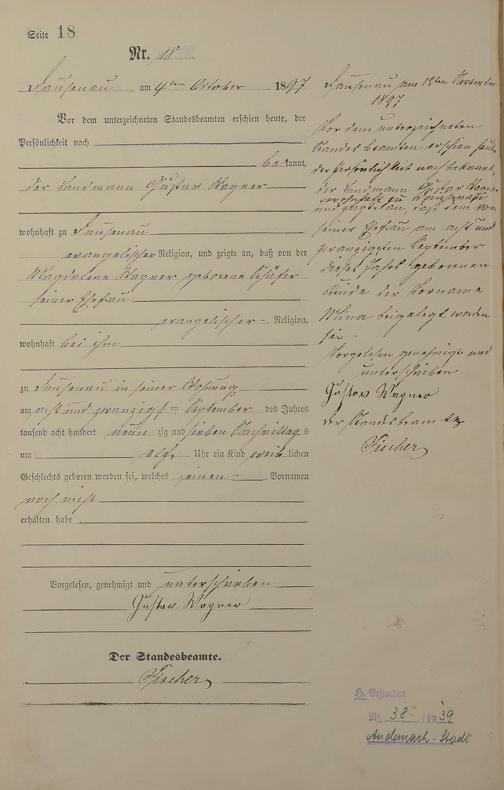 Seite 18
Nr. 18
Dausenau am 4ten October 1897
Vor dem unterzeichneten Standesbeamten erschien heute, der
Persönlichkeit nach
bekannt,
der Landmann Gustav Wagner
wohnhaft zu Dausenau
evangelischer Religion, und zeigte an, daß von der
Magdalena Wagner geborene Schäfer
seiner Ehefrau
evangelischer Religion,
wohnhaft bei ihm
zu Dausenau in seiner Wohnung
am acht und zwanzigsten September des Jahres
tausend acht hundert neunzig und sieben Nachmittags
um elf Uhr ein Kind weiblichen
Geschlechts geboren worden sei, welches einen Vornamen
noch nicht
erhalten habe
Vorgelesen, genehmigt und unterschrieben
Gustav Wagner
Der Standesbeamte.
Fischer
Dausenau am 12ten November
1897
Vor dem unterzeichneten
Standesbeamten erschien heute
der Persönlichkeit nach bekannt,
der Landmann Gustav Wagner
wohnhaft zu Dausenau
und zeigte an, daß dem von
seiner Ehefrau am acht und
zwanzigsten September
dieses Jahres geborenen
Kinde der Vorname
Mina beigelegt worden
sei.
Vorgelesen genehmigt und
unterschrieben
Gustav Wagner
der Standesbeamte
Fischer
H. Gestorben
Nr. 38 /1939
Andernach-Stadt